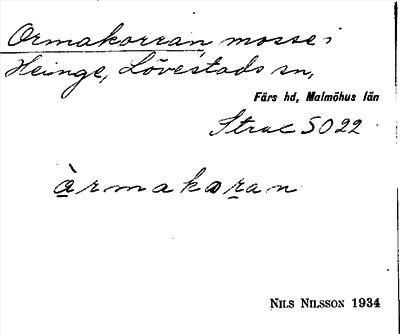 Ormakorran, mosse i
Heinge, Lövestads sn,
Färs hd, Malmöhus län
5022
àrmakoran
NILS NILSSON 1934